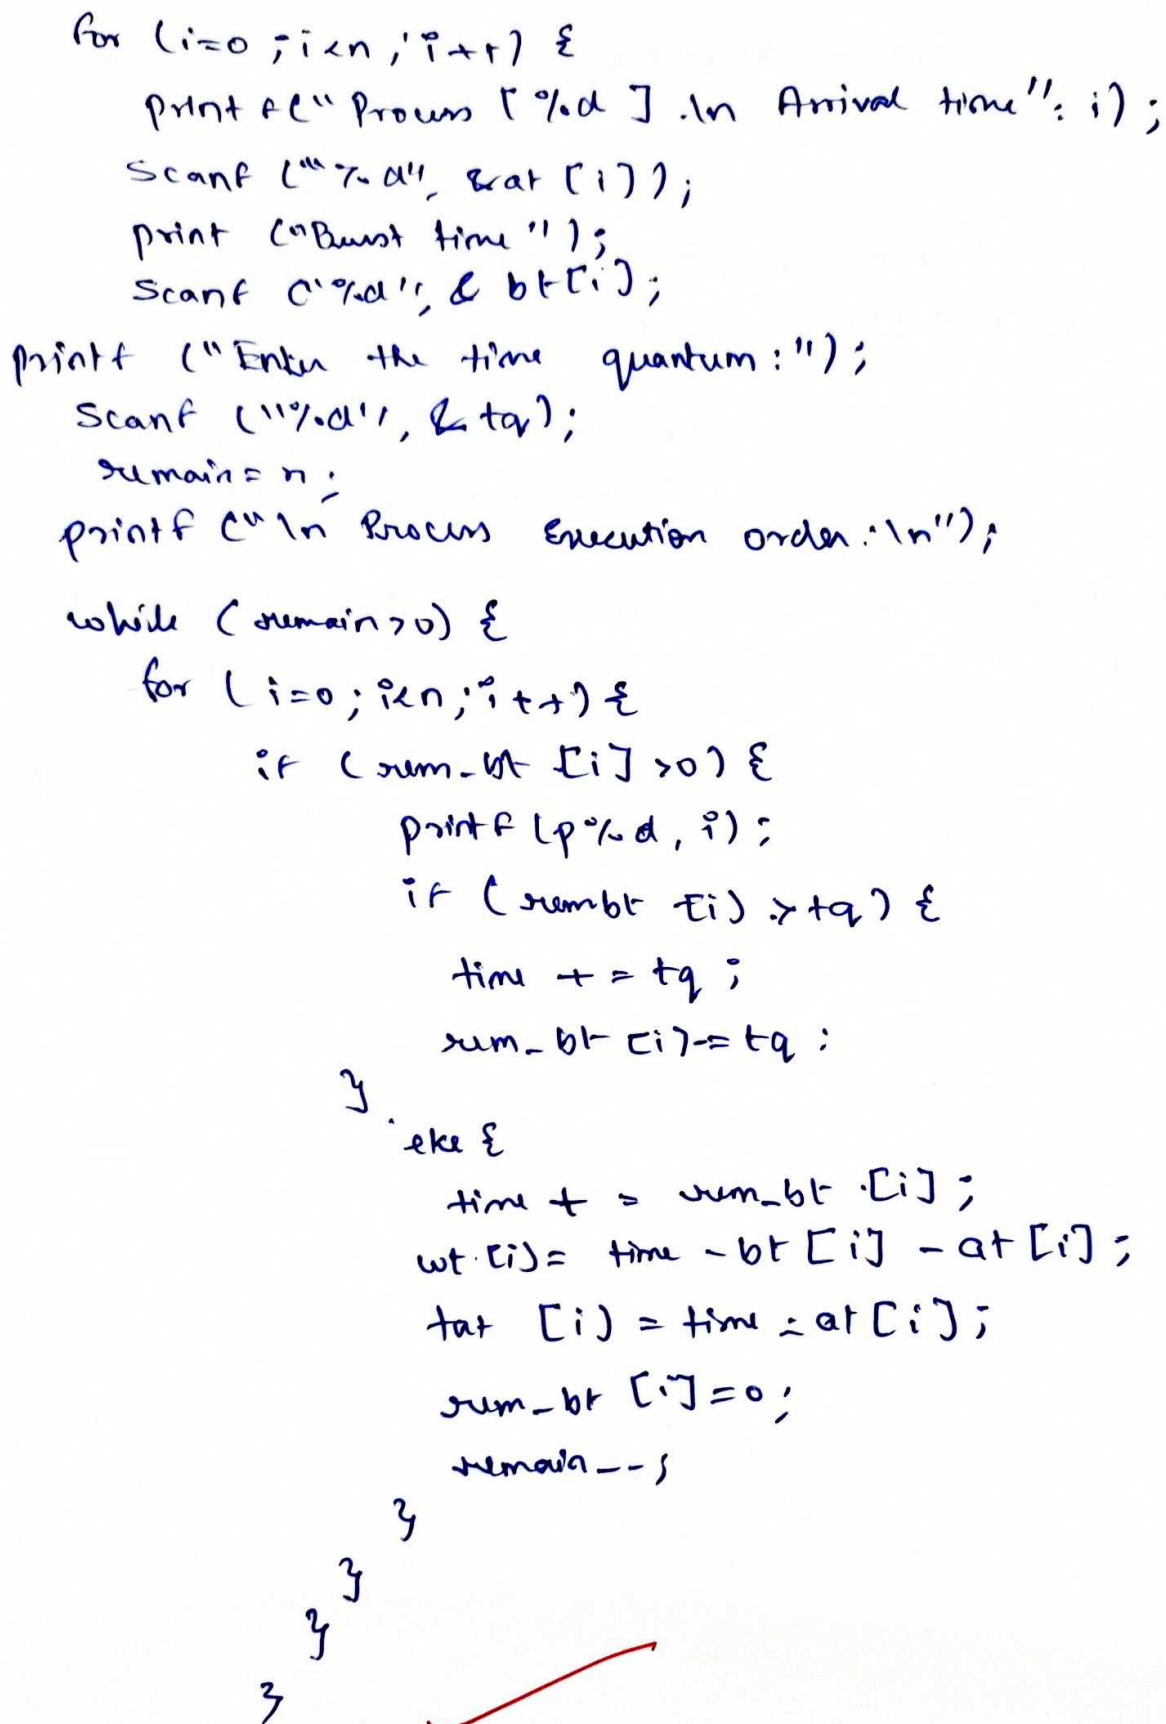 for (i=0 ; i<n ; i++) {
printf(" Process [ %d ] \n Arrival time": i) ;
scanf ("%d", &at [i]);
print ("Burst time");
scanf ("%d", & bt[i];
printf ("Enter the time quantum:");
scanf ("%d", & tq);
remain = n ;
printf ("\n Process Execution order:\n");
while (remain>0) {
for (i=0; i<n; i++) {
if (rem_bt [i] >0) {
printf (p%d, i);
if (rembt [i] > tq) {
time += tq ;
rem_bt [i]-= tq ;
}
else {
time += rem_bt [i];
wt [i]= time - bt [i] - at [i];
tat [i] = time - at [i];
rem_bt [i]=0;
remain--;
}
}
}
}